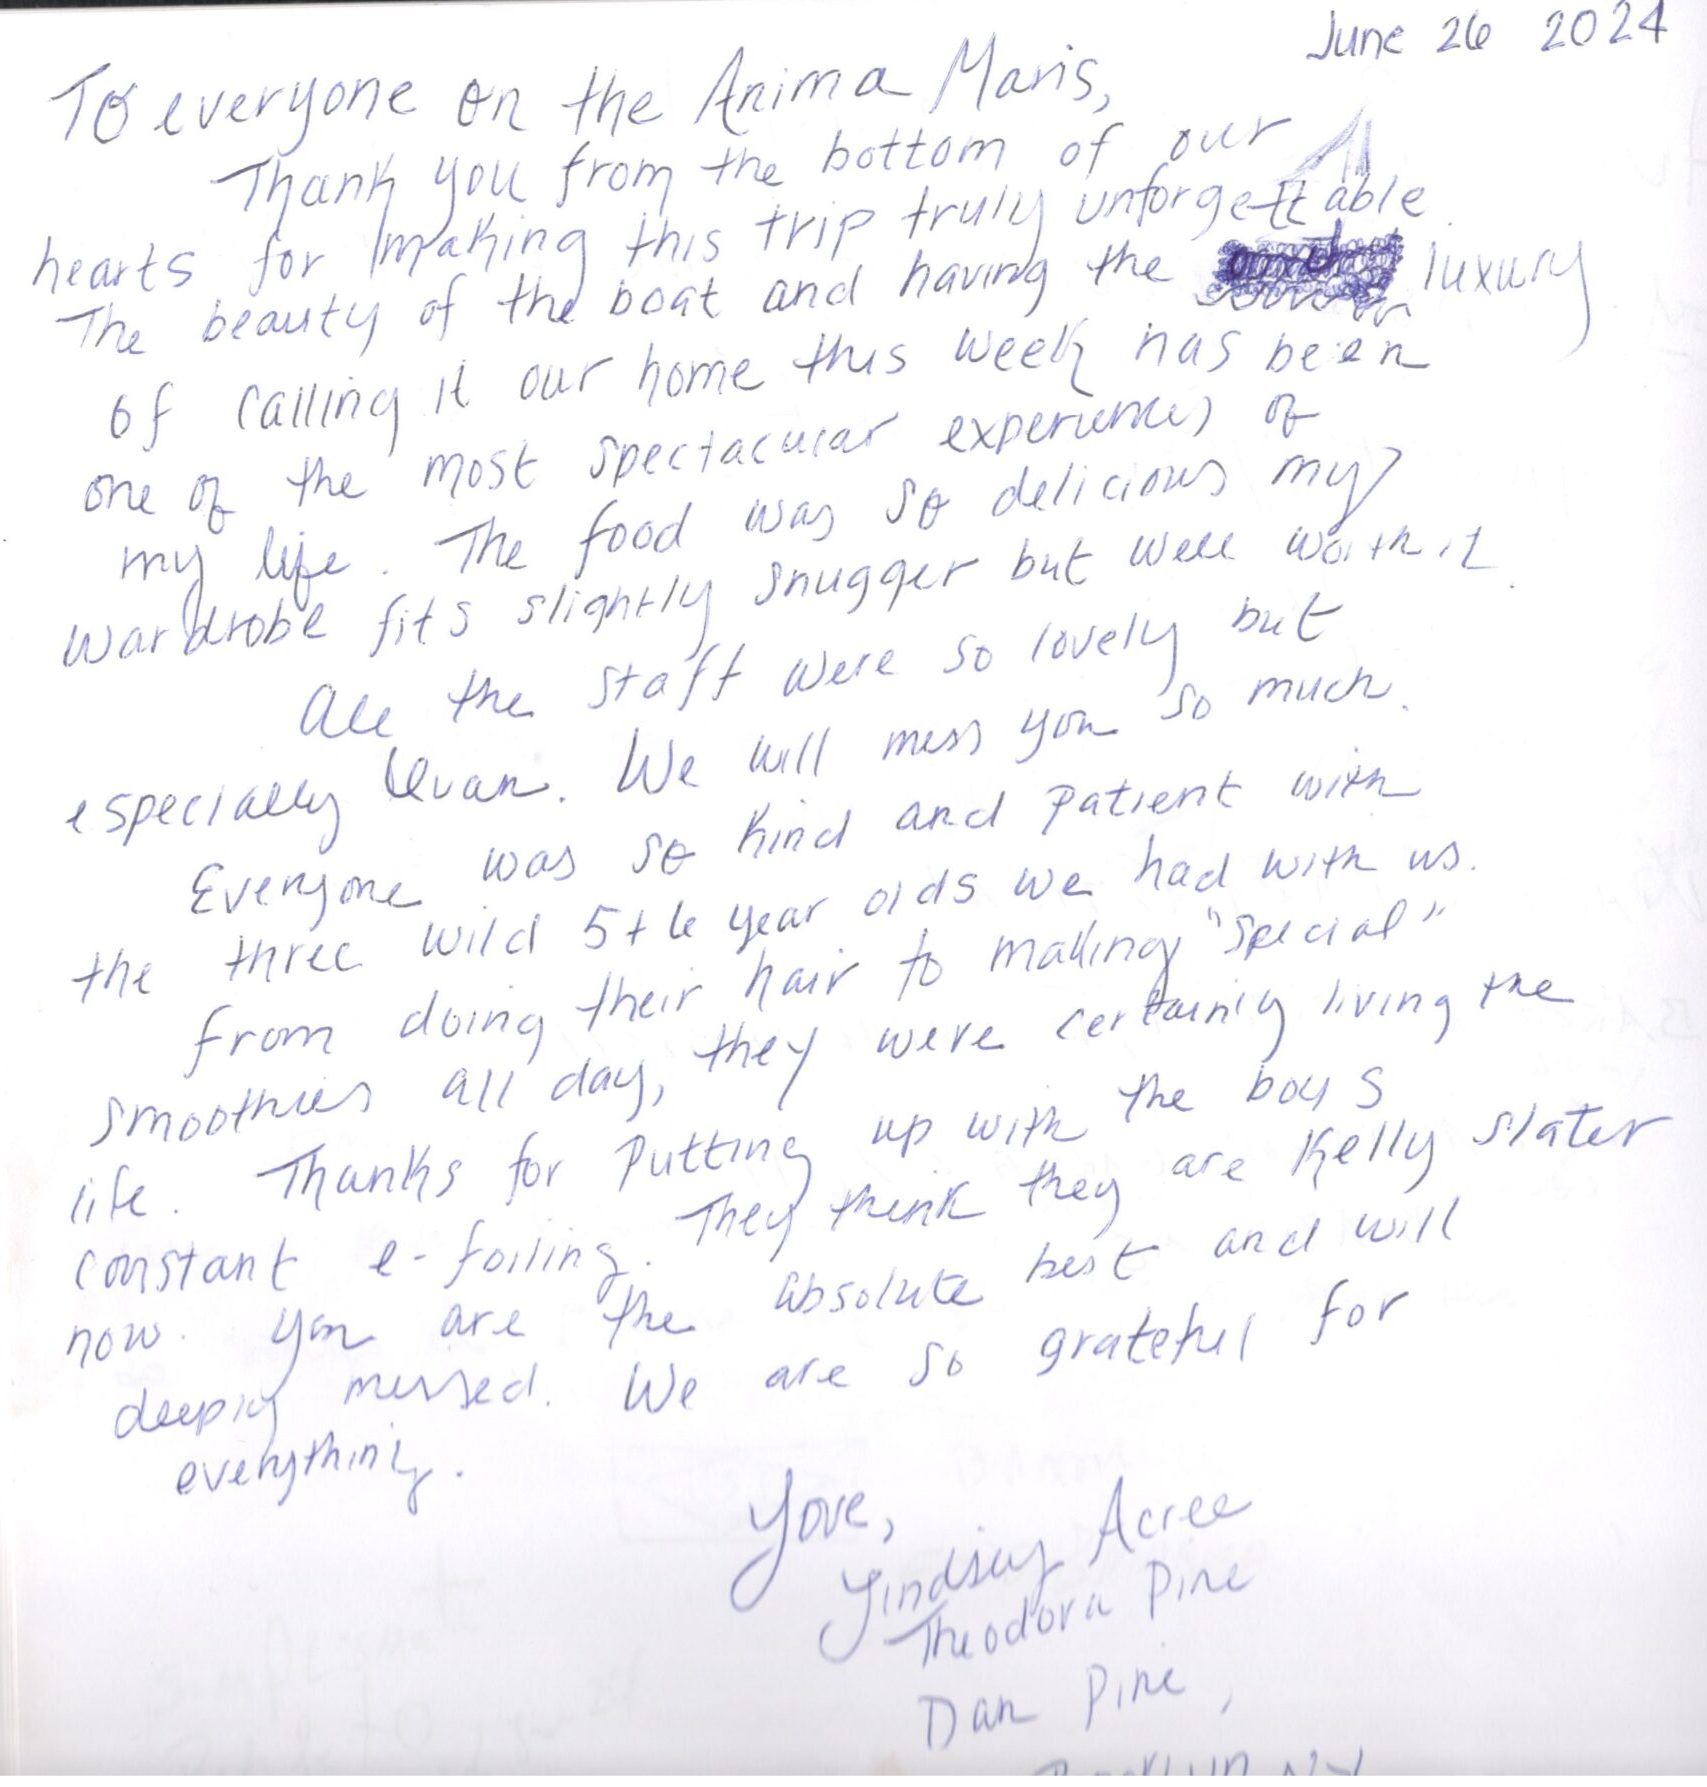 June 26 2024
To everyone on the Anima Maris,
Thank you from the bottom of our
hearts for making this trip truly unforgettable.
The beauty of the boat and having the luxury
of calling it our home this week has been
one of the most spectacular experiences of
my life. The food was so delicious my
wardrobe fits slightly snugger but well worth it.
All the staff were so lovely but
especially . We will miss you so much.
Everyone was so kind and patient with
the three wild 5+6 year olds we had with us.
from doing their hair to making "special"
smoothies all day, they were certainly living the
life. Thanks for putting up with the boys
constant e-foiling. They think they are Kelly Slater
now. You are the absolute best and will
deeply missed. We are so grateful for
everything.
Love,
Lindsay Acree
Theodora Pine
Dan Pine,
Brooklyn NY